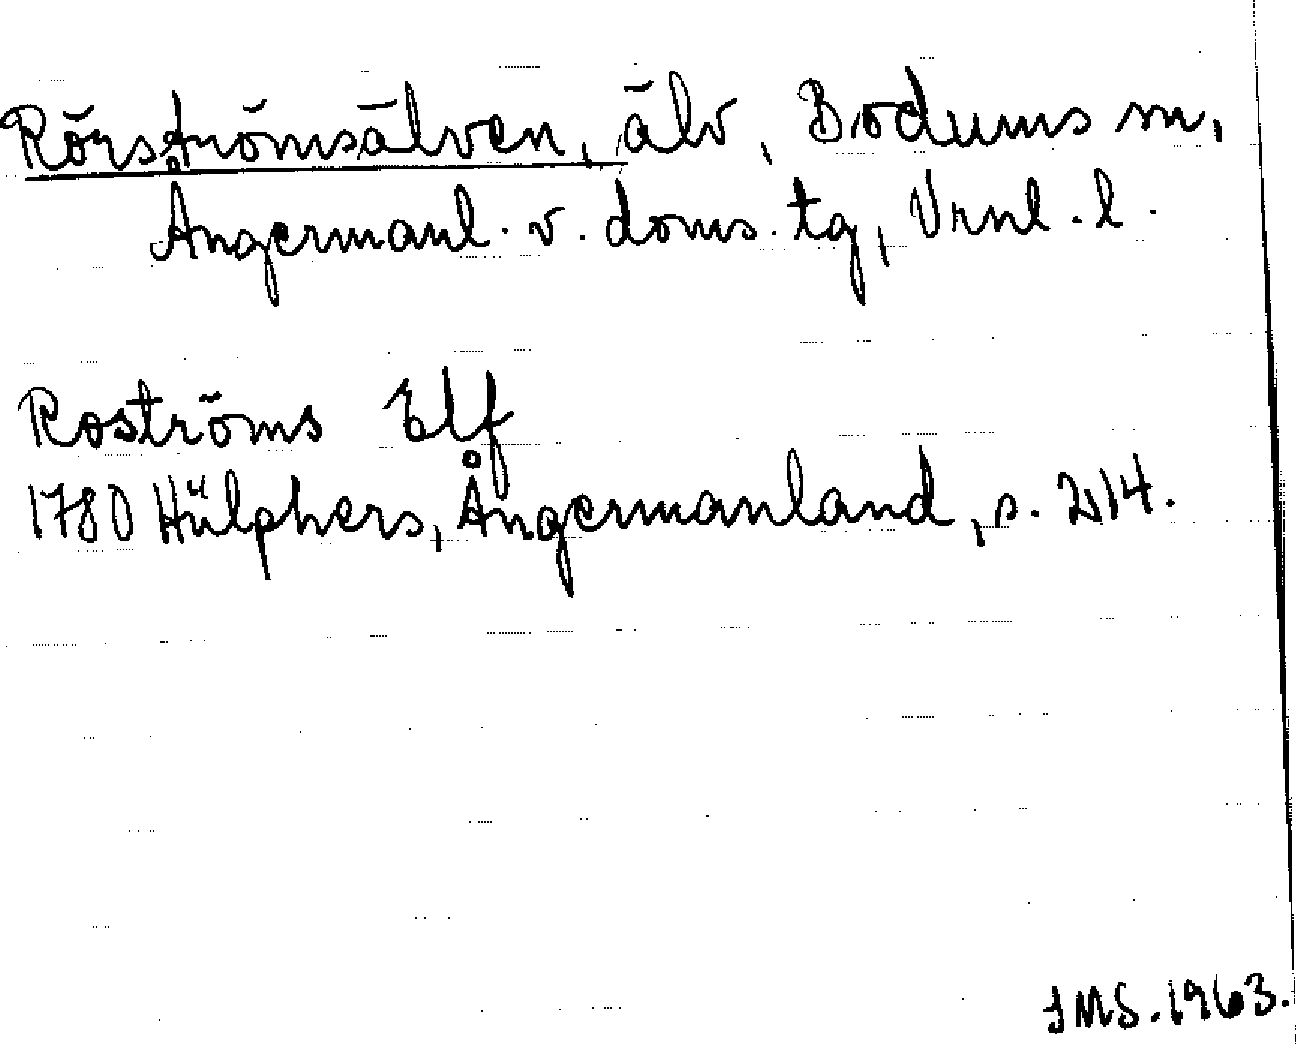 Rörströmsälven, älv, Bodums sn,
Ångermanl. v. doms. tg, Vrnl. l.
Roströms Elf
1780 Hülphers, Ångermanland, s. 214.
JMS. 1963.